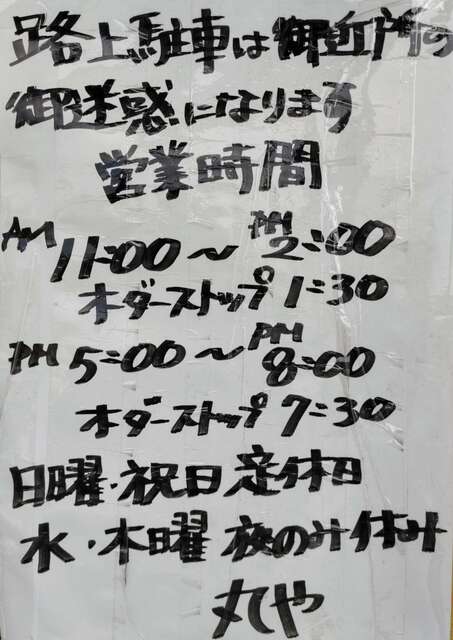 路上駐車は御近所の
御迷惑になります
営業時間
AM 11:00～PM 2:00
オダーストップ 1:30
PM 5:00～PM 8:00
オダーストップ 7:30
日曜・祝日定休日
水・木曜 夜のみ休み
丸や